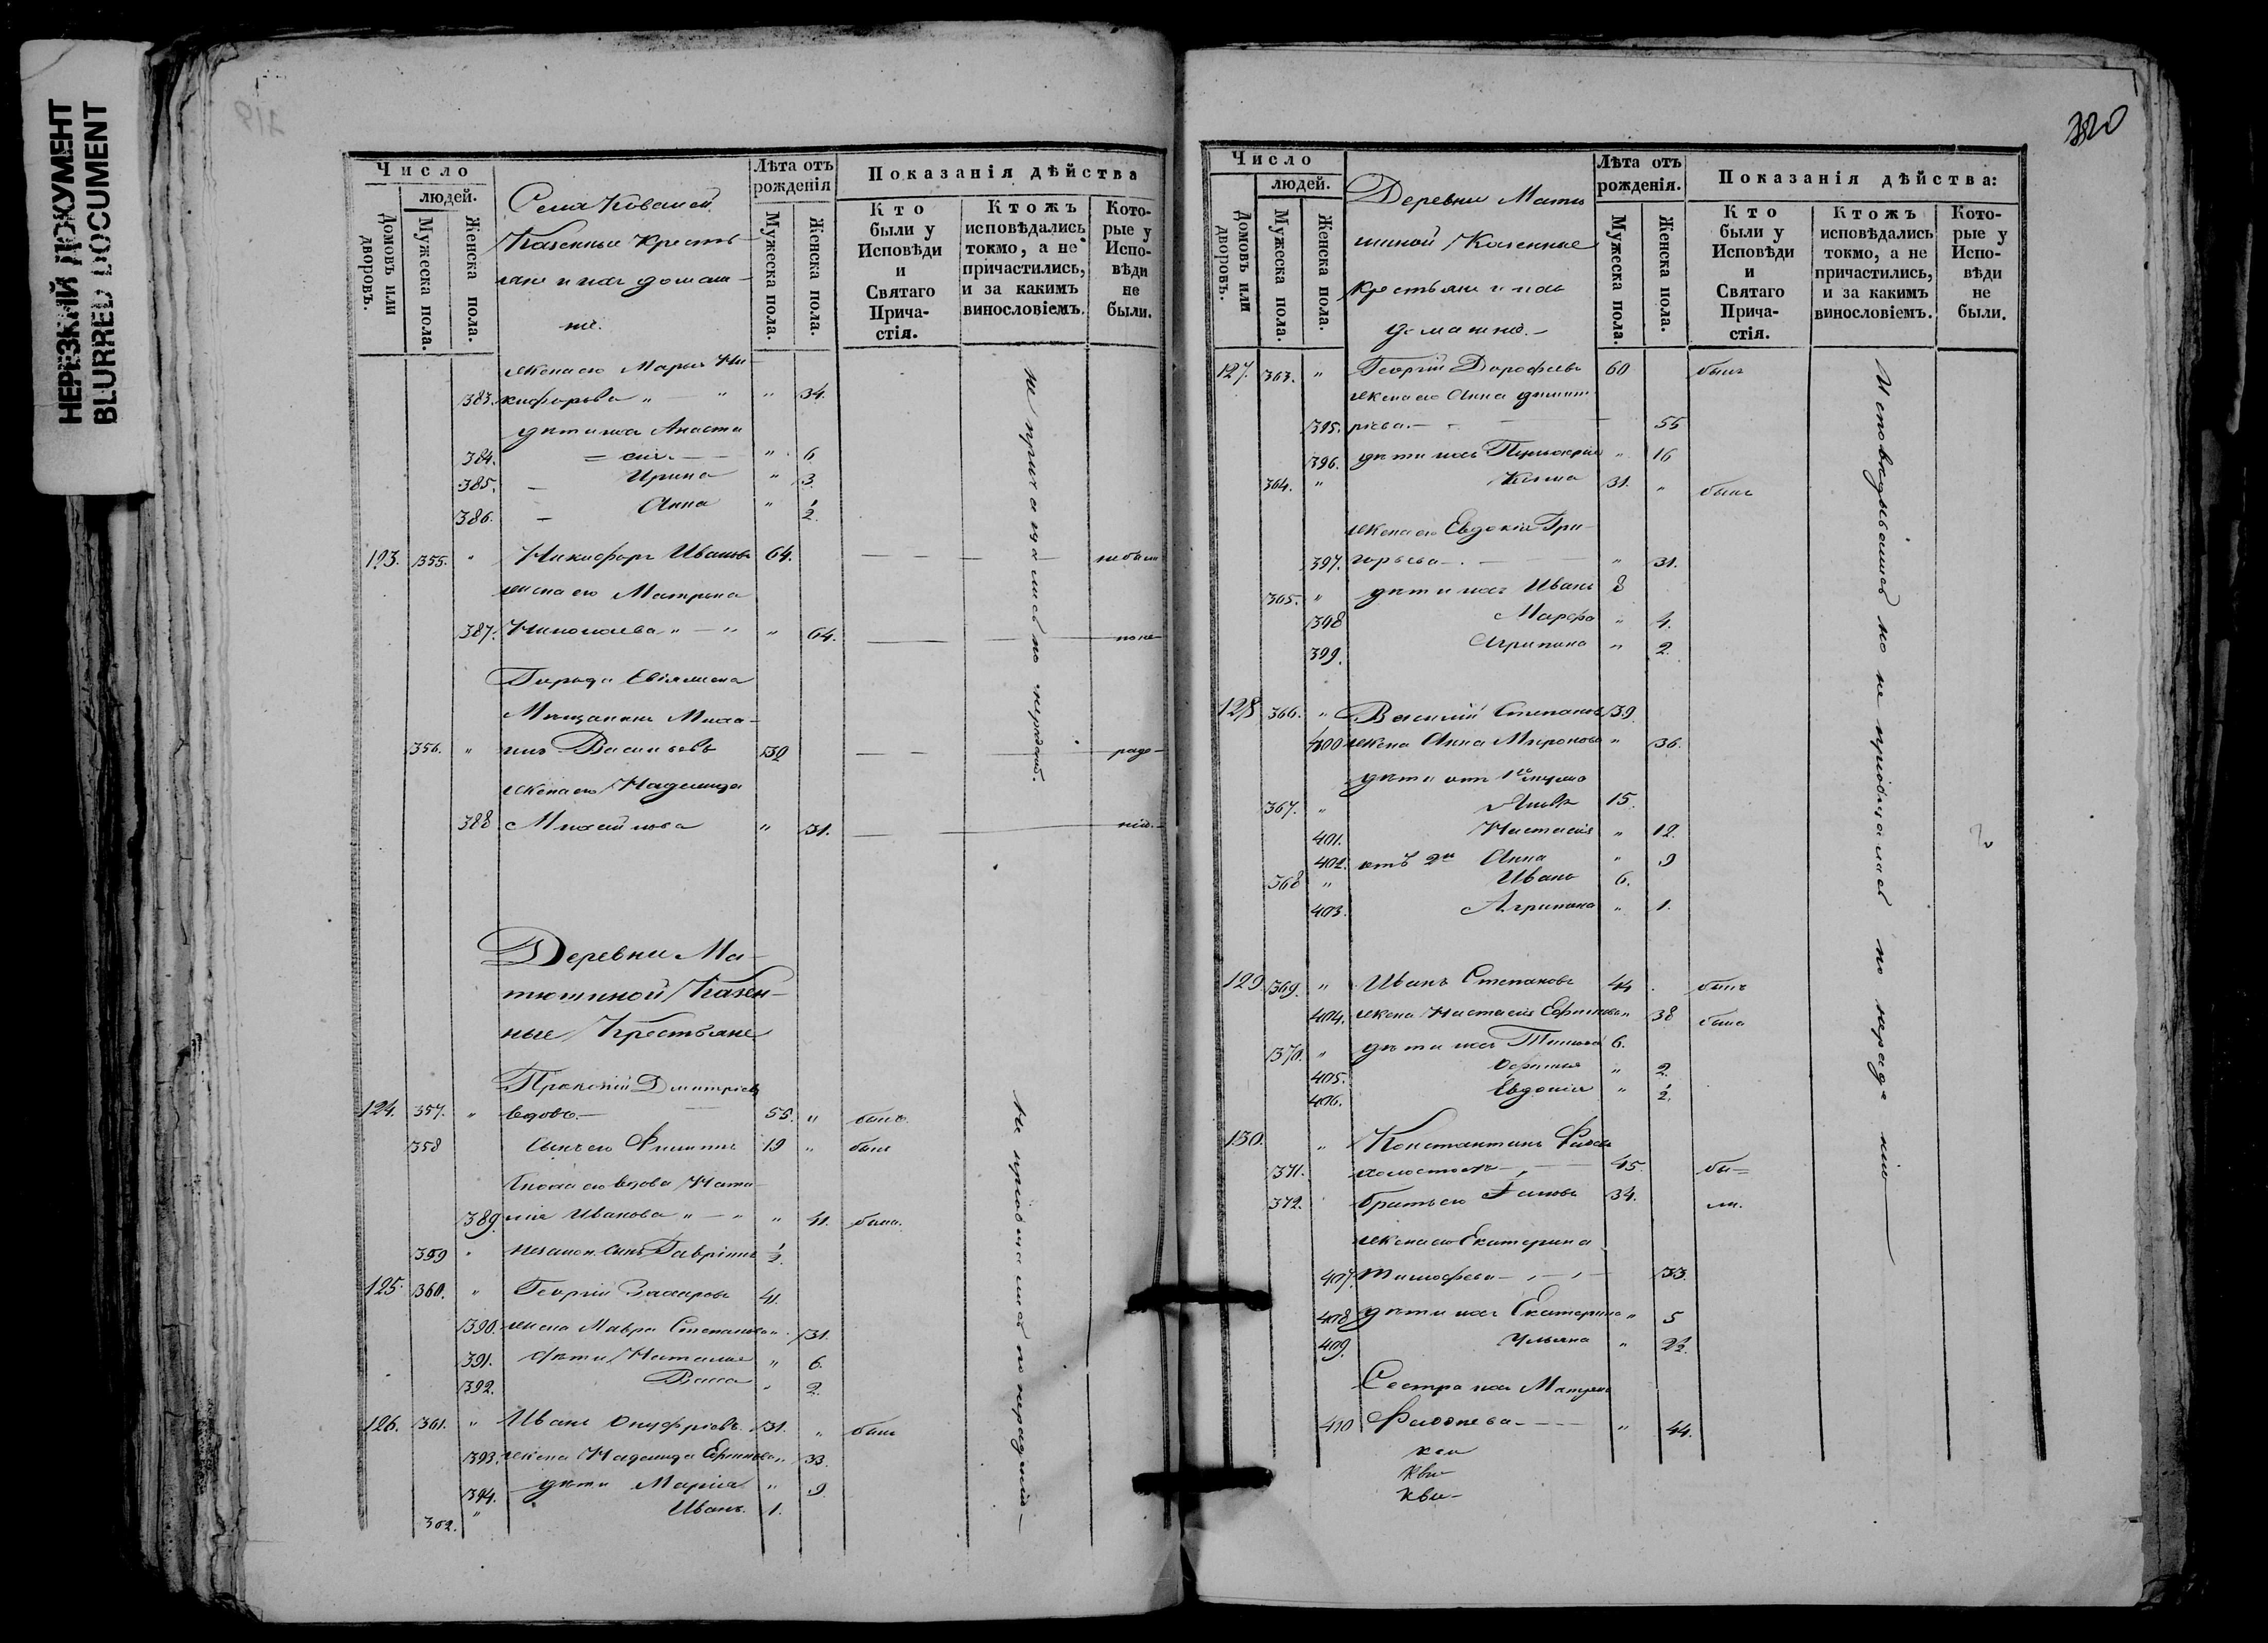 НЕРЕЗКИЙ ДОКУМЕНТ
BLURRED DOCUMENT
Число
людей.
Домовъ или дворовъ.
Мужеска пола.
Женска пола.
Села
Казенные Кресть-
яне и ихъ домаш-
ніе.
Лѣта отъ рожденія
Мужеска пола.
Женска пола.
Показанія дѣйства
Кто были у Исповѣди и Святаго Причастія.
Ктожъ исповѣдались токмо, а не причастились, и за какимъ винословіемъ.
Кото-рые у Испо-вѣди не были.
жена его Марья Ни-
383. кифорова " — " " 34.
дѣти ихъ Анаста
384. = сія — — " 6
385. — Ирина " 3.
386. — Анна " 1/2.
123. 355. " Никифоръ Ивановъ 64. — — — не были
жена его Матрена
387. Николаева " — " " 64. — —
Города Свіяжска
Мещанинъ Миха-
356. " илъ Васильевъ 39 — — — раде-
жена его Надежда
388 Михайлова " 31. — — нію.-
Деревни Ма-
тюшиной Казен-
ные Крестьяне
Прокопій Дмитріевъ
124. 357. " вдовъ.— — 55. " былъ.
358 сынъ его Филиппъ 19 " былъ
Сноха его вдова Ната-
389. лія Иванова " — " " 41. была.
359 " незакон. сынъ Гавріилъ 1/2.
125. 360. " Георгій Захаровъ 41.
390. жена Мавра Степанова " 31.
391. Дѣти Наталья " 6.
392. Васса " 2.
126. 361. " Иванъ Онуфріевъ 31. " былъ
393. жена Надежда Ефимова " 33.
394. дѣти Марія " 9
362. " Иванъ. 1.
Не пріобщались по нерадѣнію—
320
Число
людей.
Домовъ или дворовъ.
Мужеска пола.
Женска пола.
Деревни Матю
шиной Казенные
Крестьяне и ихъ
домашніе.—
Лѣта отъ рожденія.
Мужеска пола.
Женска пола.
Показанія дѣйства:
Кто были у Исповѣди и Святаго Причастія.
Ктожъ исповѣдались токмо, а не причастились, и за какимъ винословіемъ.
Кото-рые у Испо-вѣди не были.
127. 363. " Георгій Дорофѣевъ 60 былъ
жена его Анна Дмит-
395. ріева.— — 55
396. дѣти ихъ " 16
364. " 31. " былъ
жена его Евдокія Гри-
397. горьева — . — " 31.
365. " дѣти ихъ Иванъ 8
398 Марфа " 4.
399. Агрипина " 2.
128 366. " Василій Степановъ 39.
400 жена Анна Миронова " 36.
дѣти отъ 1го мужа
367. " Яковъ 15.
401. Настасія " 12.
402. отъ 2го Анна " 9
368 " Иванъ 6.
403. Агрипина " 1.
129 369. " Иванъ Степановъ 44 . былъ
404. жена Настасія Ефимова " 38 была
370. " дѣти ихъ 6.
405. " 2.
406. Евдокія " 1/2.
130. " Константинъ
371. холостъ — , — 45. бы=
372. братъ его 34. ли.
жена его Екатерина
407. Тимофеева — , — , — 33.
408 дѣти ихъ Екатерина " 5
409. Ульяна " 2 1/2.
Сестра ихъ Матрена
410 — — — " 44.
Исповѣдывались но не пріобщались по нерадѣнію —